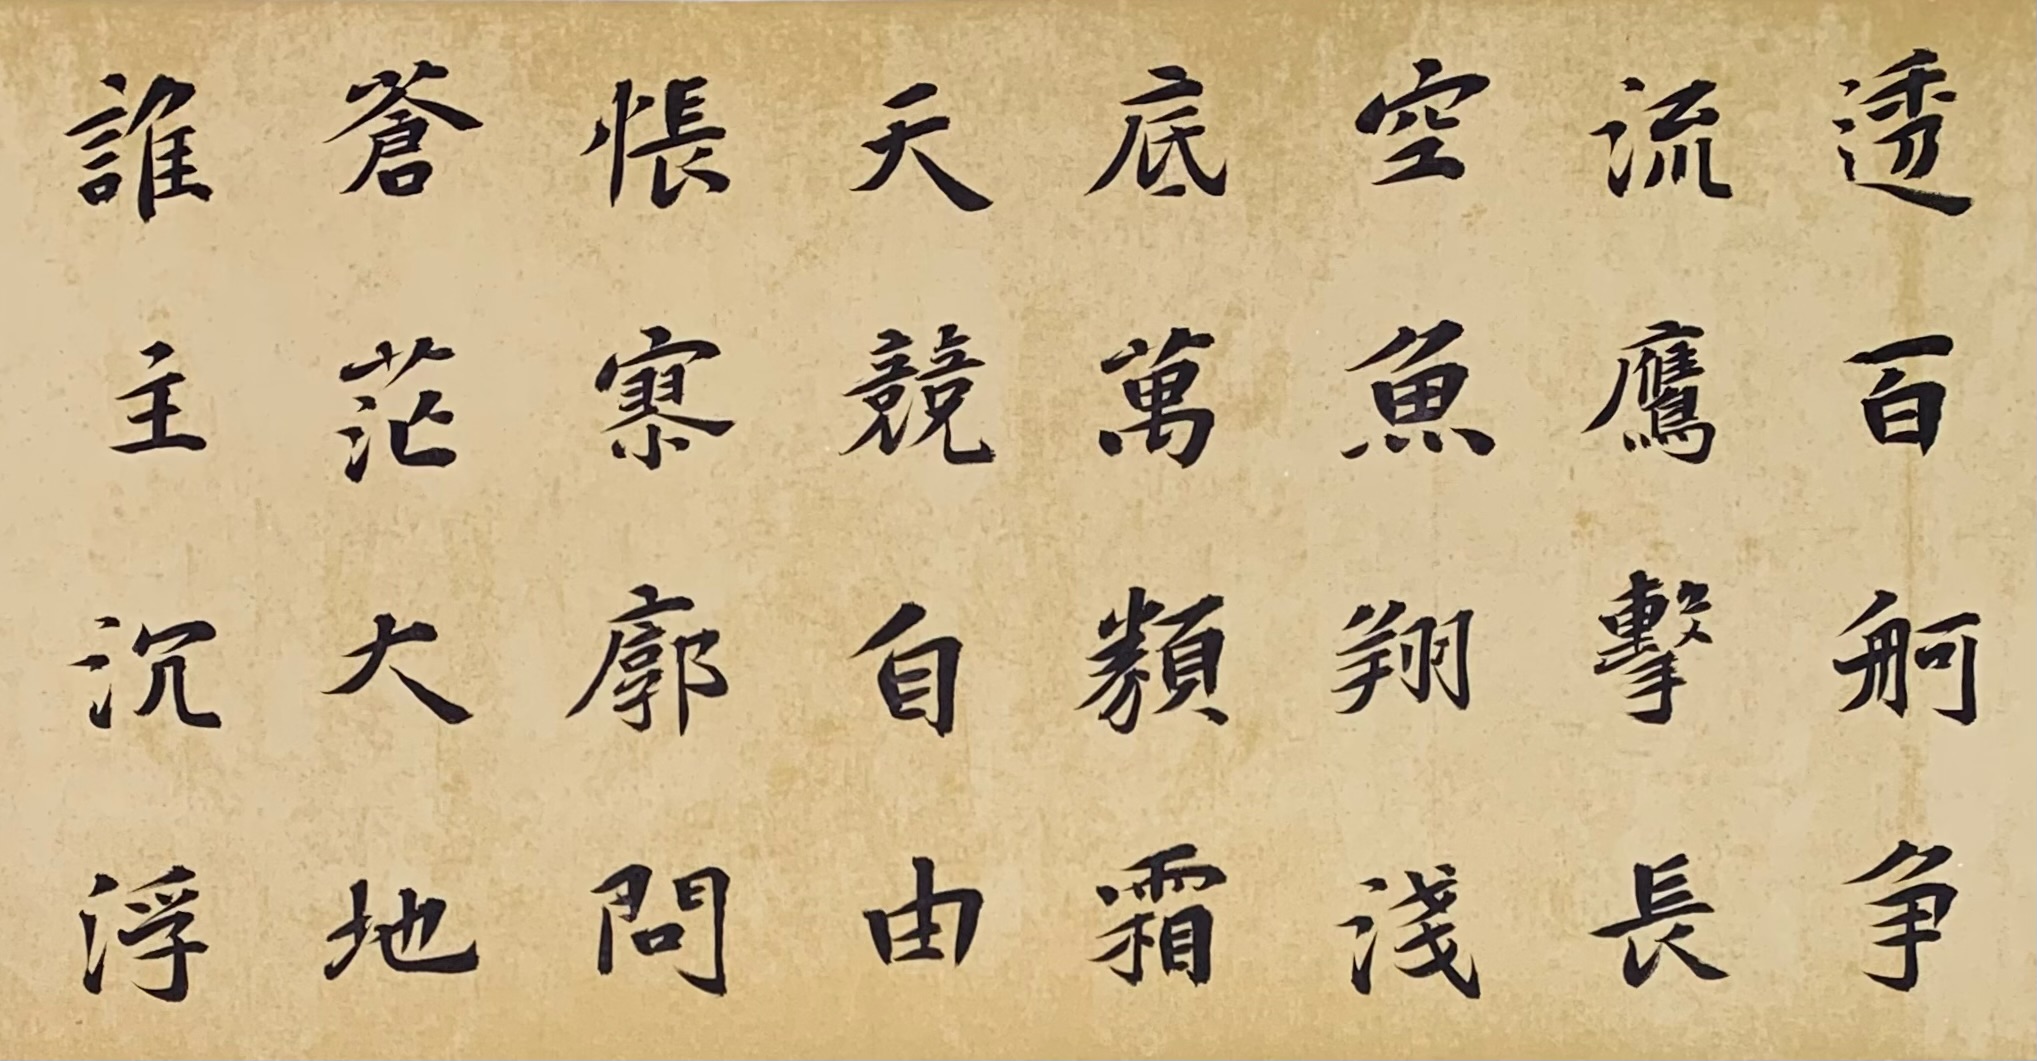 透百舸争
流鷹擊長
空魚翔淺
底萬類霜
天競自由
悵寥廓問
蒼茫大地
誰主沉浮